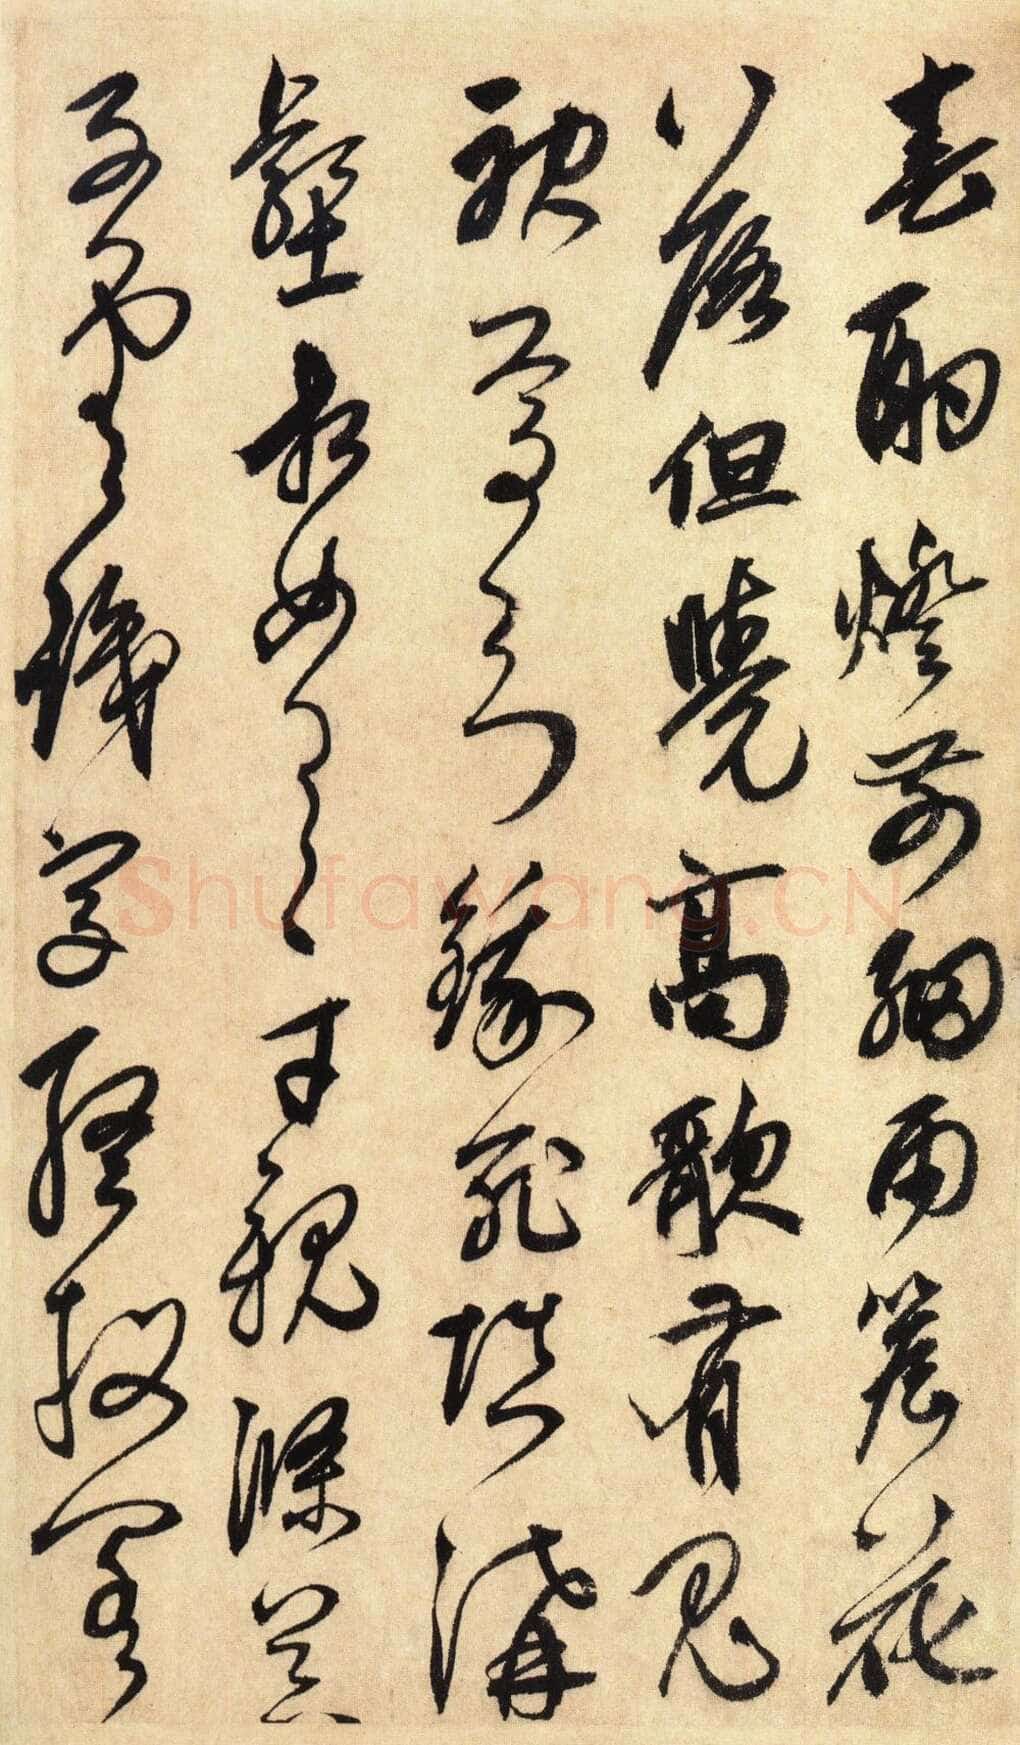 春酌燈前細雨簷花
落但覺高歌有鬼
神焉知餓死填溝
壑相如逸才親滌器
子雲識字終投閣
Shufawang.CN